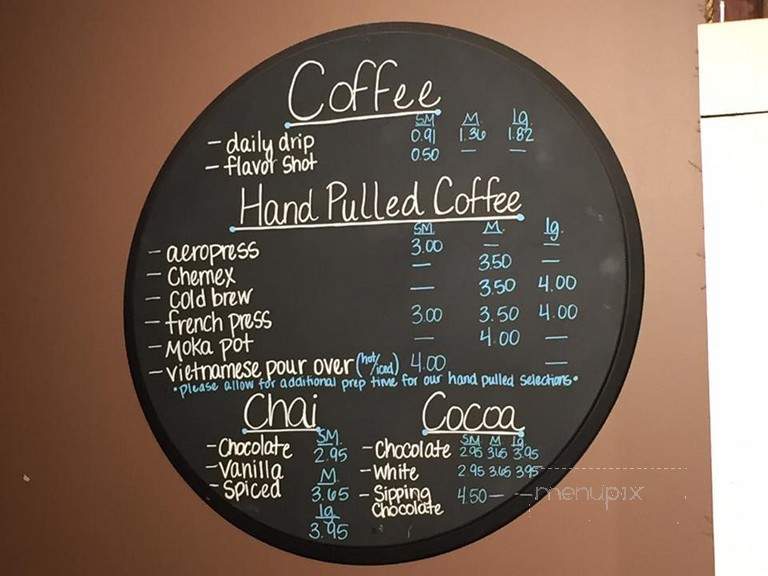 Coffee
SM M. lg.
- daily drip 0.91 1.36 1.82
- flavor shot 0.50 — —
Hand Pulled Coffee
SM M. lg.
- aeropress 3.00 — —
- Chemex — 3.50 —
- Cold brew — 3.50 4.00
- french press 3.00 3.50 4.00
- Moka pot — 4.00 —
- vietnamese pour over (hot/iced) 4.00 —
•please allow for additional prep time for our hand pulled selections•
Chai
- Chocolate
- Vanilla
- Spiced
SM.
2.95
M.
3.65
lg.
3.95
Cocoa
SM M lg.
- Chocolate 2.95 3.65 3.95
- White 2.95 3.65 3.95
- Sipping Chocolate 4.50 — —
menupix